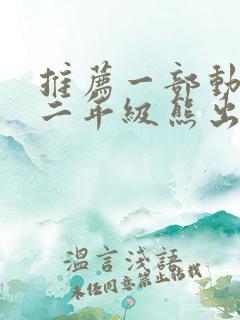 推薦一部動
二年級熊出
溫言淺語
未任同意禁止轉載